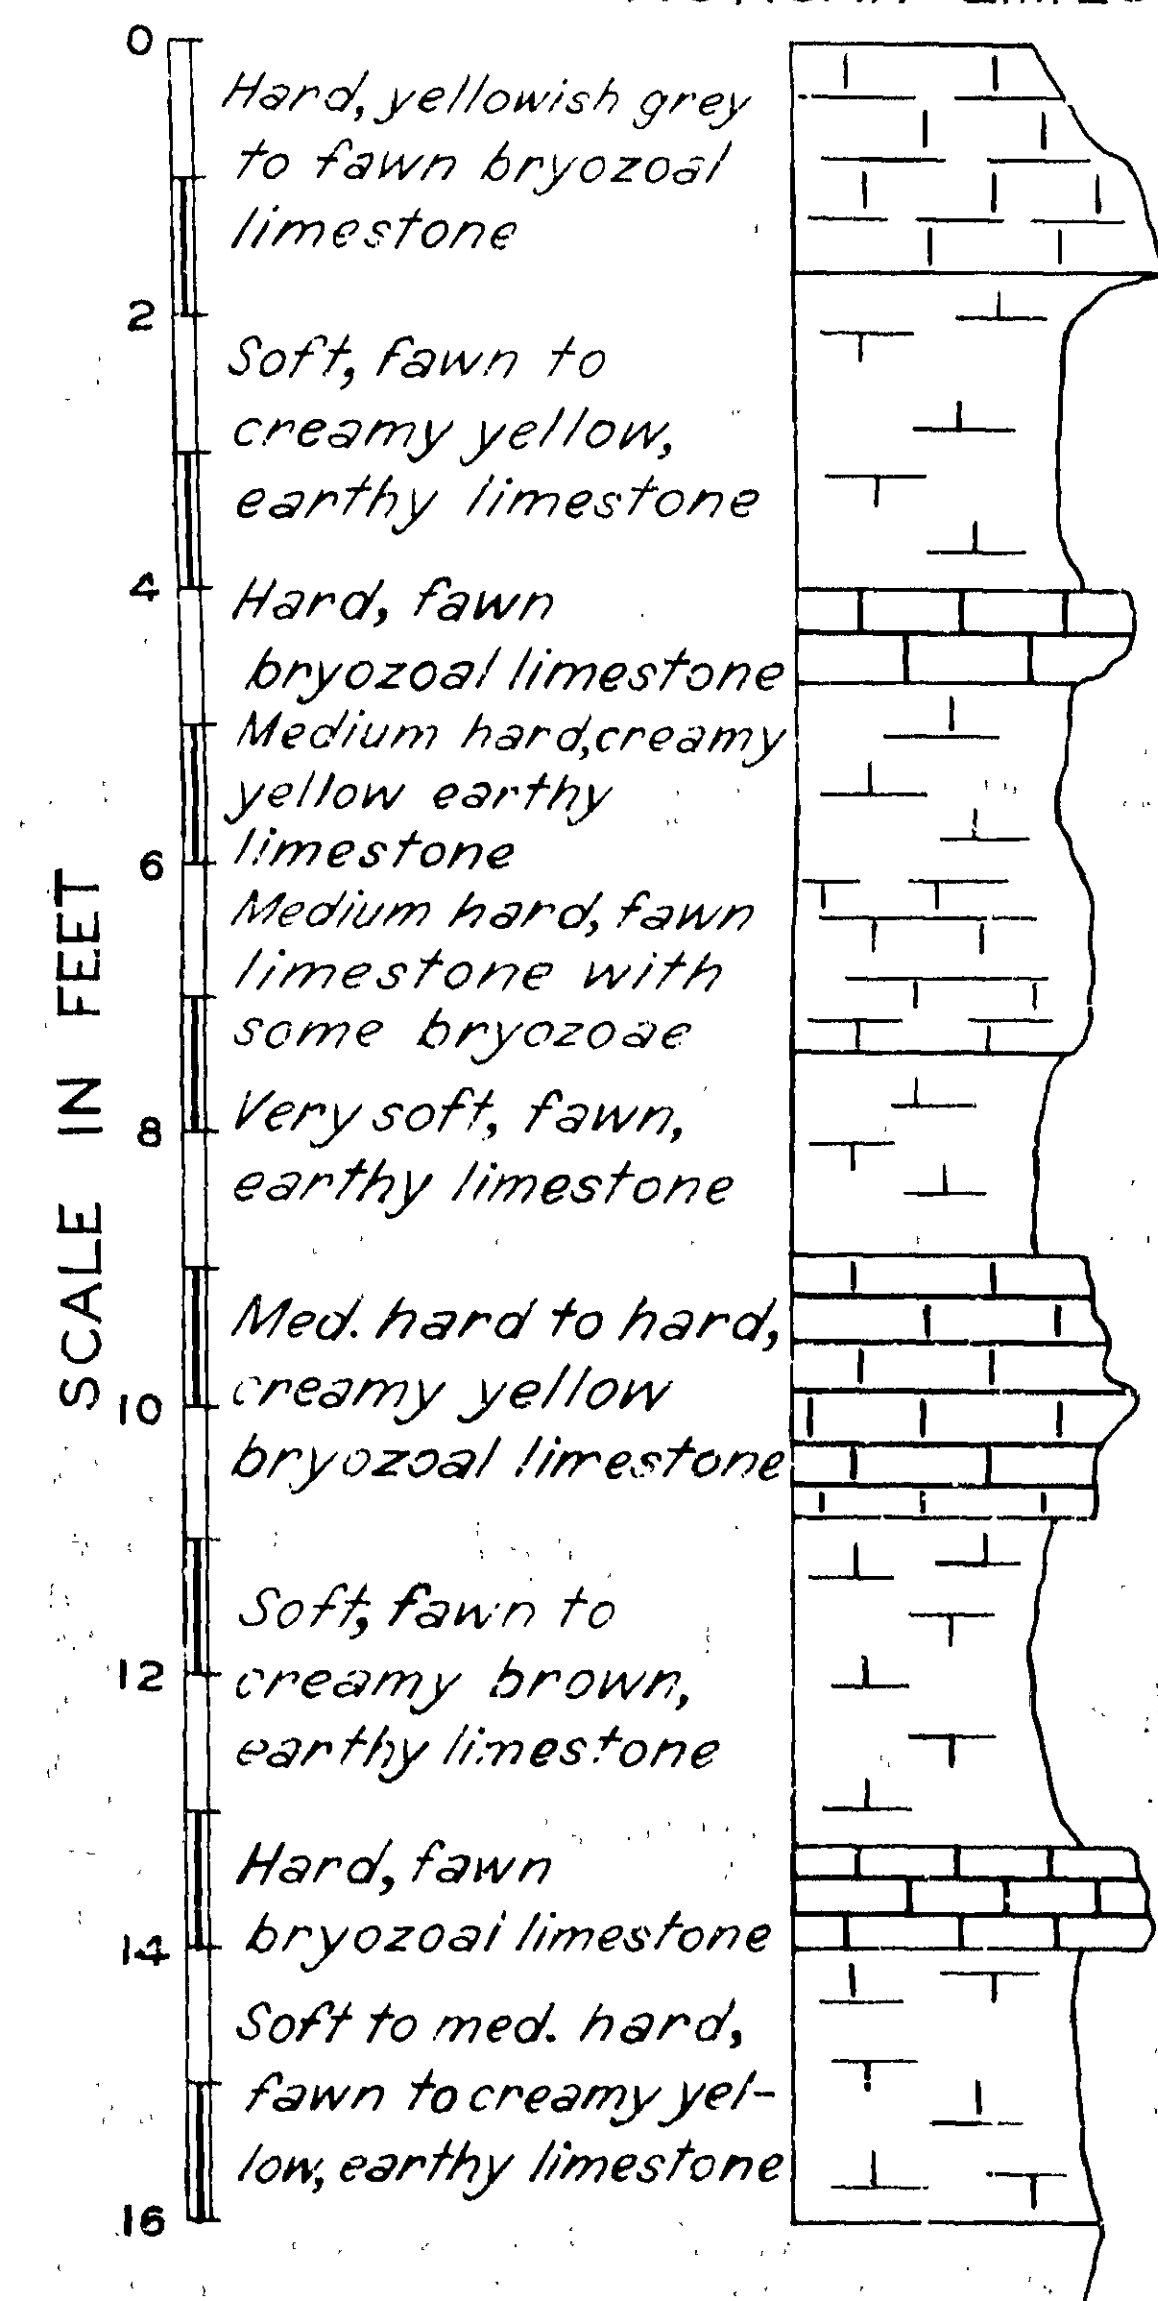 0
Hard, yellowish grey
to fawn bryozoal
limestone
2
Soft, fawn to
creamy yellow,
earthy limestone
4
Hard, fawn
bryozoal limestone
Medium hard, creamy
yellow earthy
limestone
6
Medium hard, fawn
limestone with
some bryozoae
8
Very soft, fawn,
earthy limestone
SCALE IN FEET
Med. hard to hard,
10
creamy yellow
bryozoal limestone
Soft, fawn to
12
creamy brown,
earthy limestone
Hard, fawn
14
bryozoal limestone
Soft to med. hard,
fawn to creamy yel-
low, earthy limestone
16